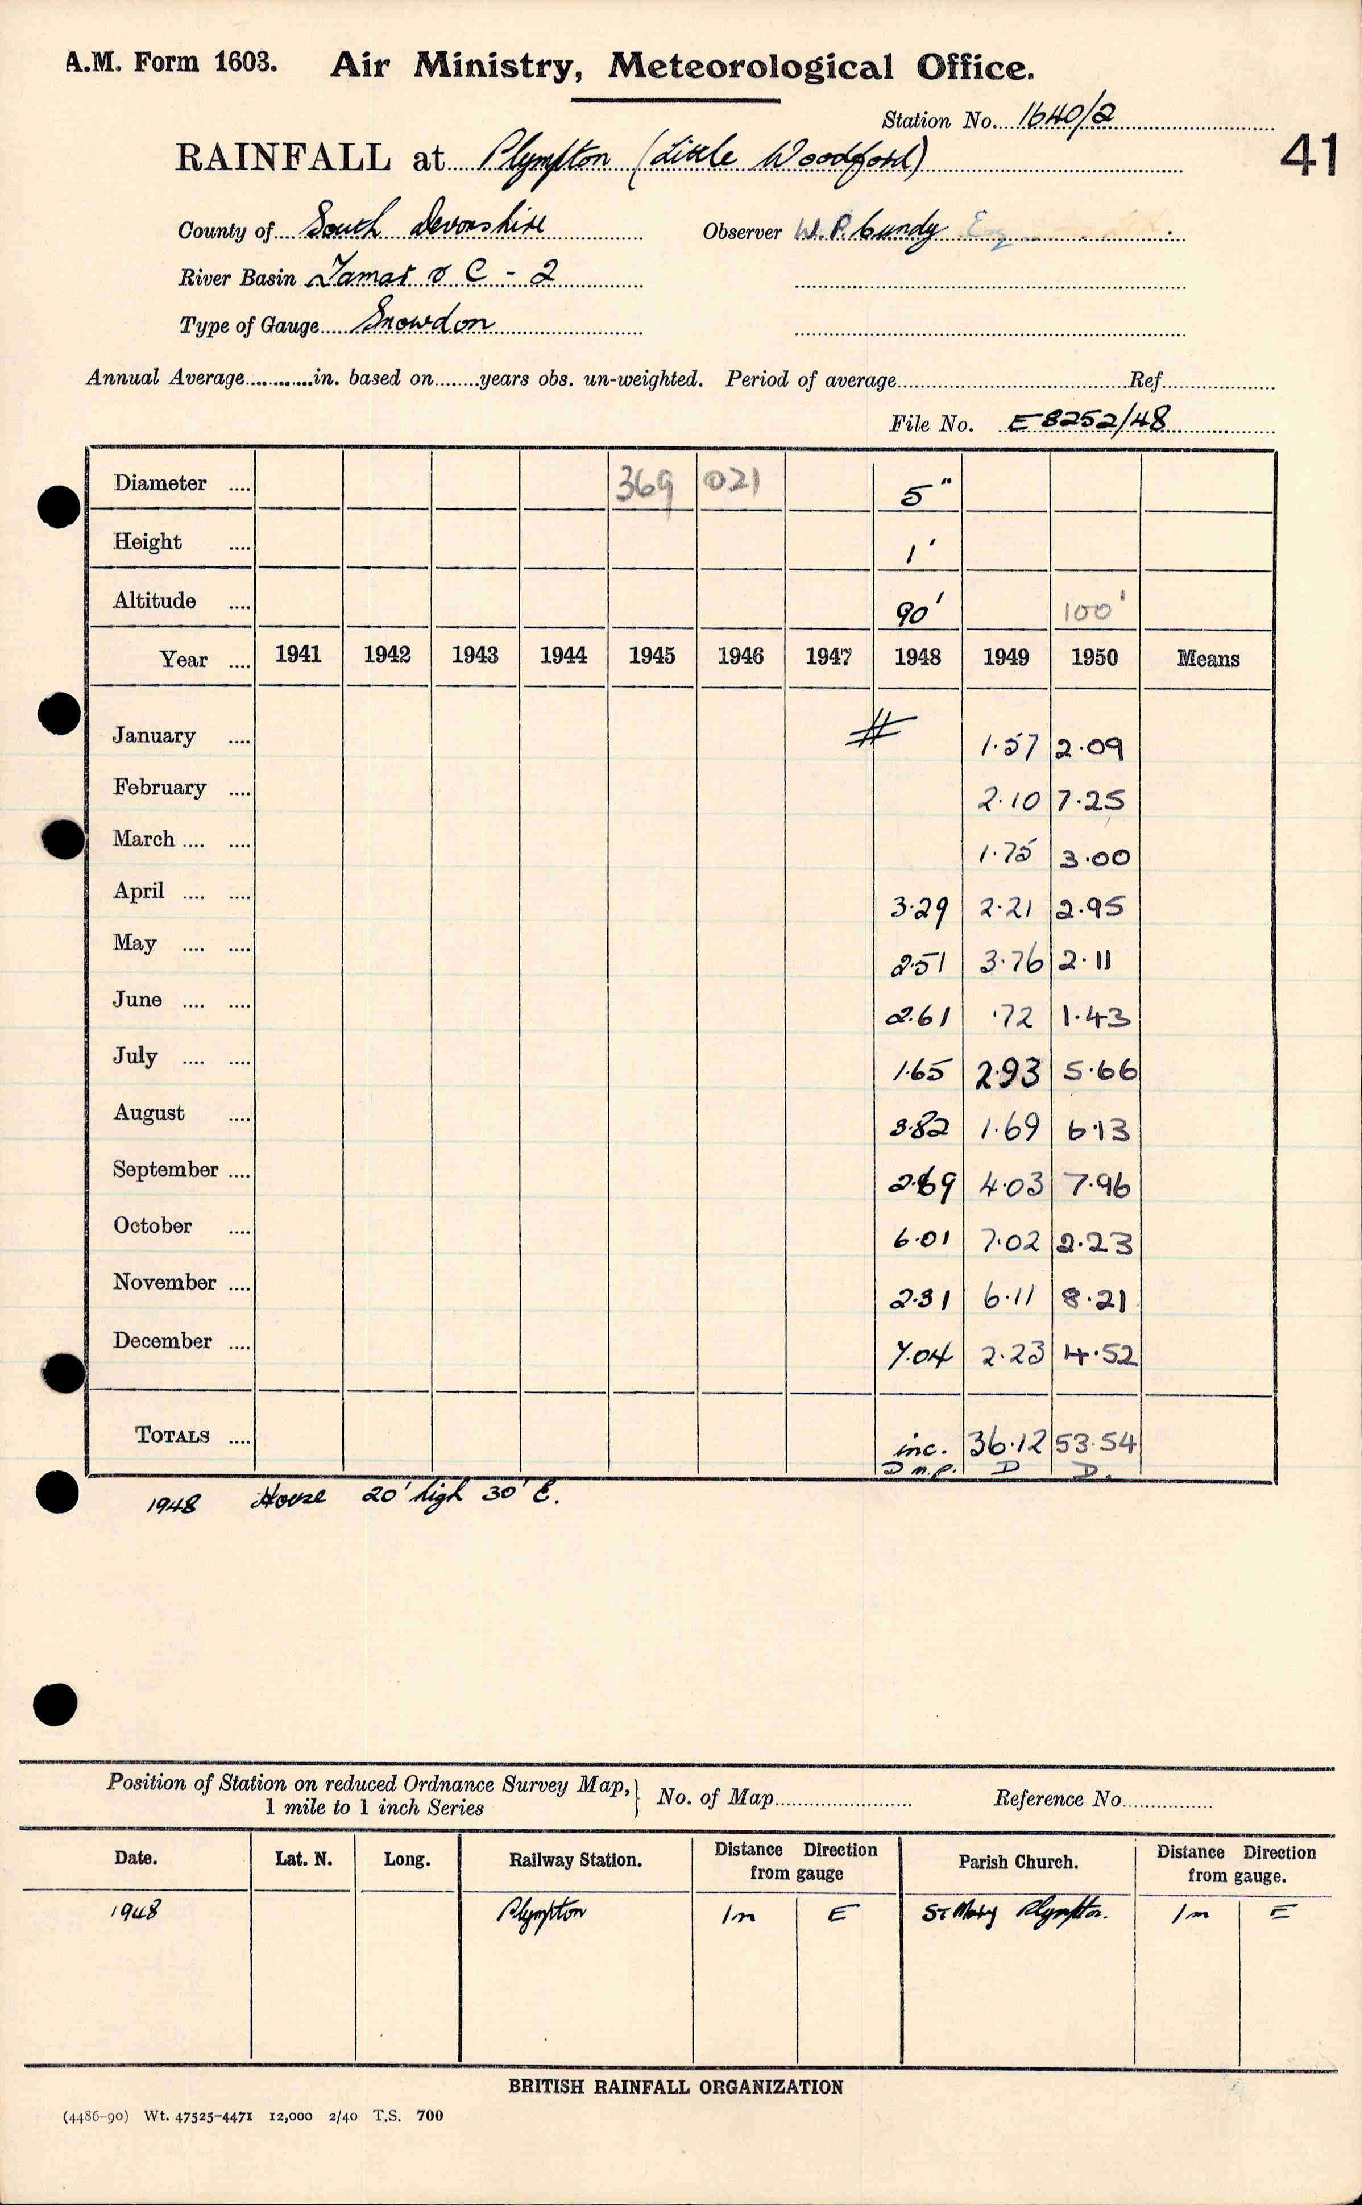 A.M. Form 1603. Air Ministry, Meteorological Office.
Station No. 1640/2
41
RAINFALL at Plympton (Little Woodford)
County of South Devonshire Observer W. P. Cundy Esq
River Basin Tamar & C - 2
Type of Gauge Snowdon
Annual Average............in. based on........years obs. un-weighted. Period of average........Ref........
File No. E 8252/48
Diameter .... 369 021 5"
Height .... 1'
Altitude .... 90' 100'
Year .... 1941 1942 1943 1944 1945 1946 1947 1948 1949 1950 Means
January .... # 1.57 2.09
February .... 2.10 7.25
March .... .... 1.75 3.00
April .... .... 3.29 2.21 2.95
May .... .... 2.51 3.76 2.11
June .... .... 2.61 .72 1.43
July .... .... 1.65 2.93 5.66
August .... 3.82 1.69 6.13
September .... 2.69 4.03 7.96
October .... 6.01 7.02 2.23
November .... 2.31 6.11 8.21
December .... 7.04 2.23 4.52
TOTALS .... inc. 36.12 53.54
D m.p. D D.
1948 House 20' high 30' E.
Position of Station on reduced Ordnance Survey Map, } No. of Map........ Reference No........
1 mile to 1 inch Series
Date. Lat. N. Long. Railway Station. Distance Direction from gauge Parish Church. Distance Direction from gauge.
1948 Plympton 1m E St Mary Plympton. 1m E
BRITISH RAINFALL ORGANIZATION
(4486-90) Wt. 47525-4471 12,000 2/40 T.S. 700